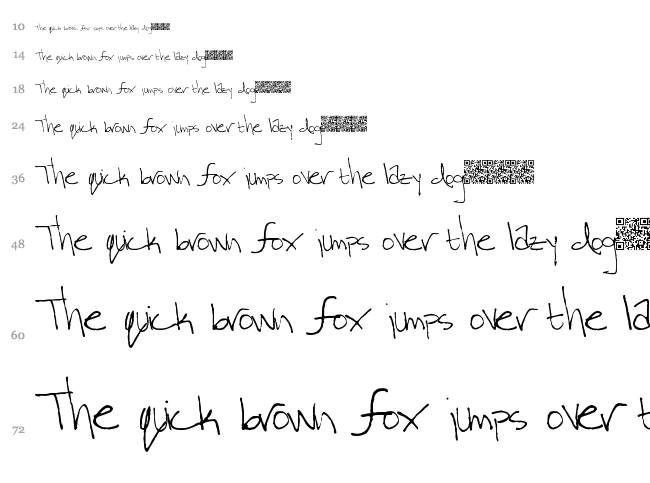 10 The quick brown fox jumps over the lazy dog
14 The quick brown fox jumps over the lazy dog
18 The quick brown fox jumps over the lazy dog
24 The quick brown fox jumps over the lazy dog
36 The quick brown fox jumps over the lazy dog
48 The quick brown fox jumps over the lazy dog
60 The quick brown fox jumps over the la
72 The quick brown fox jumps over t